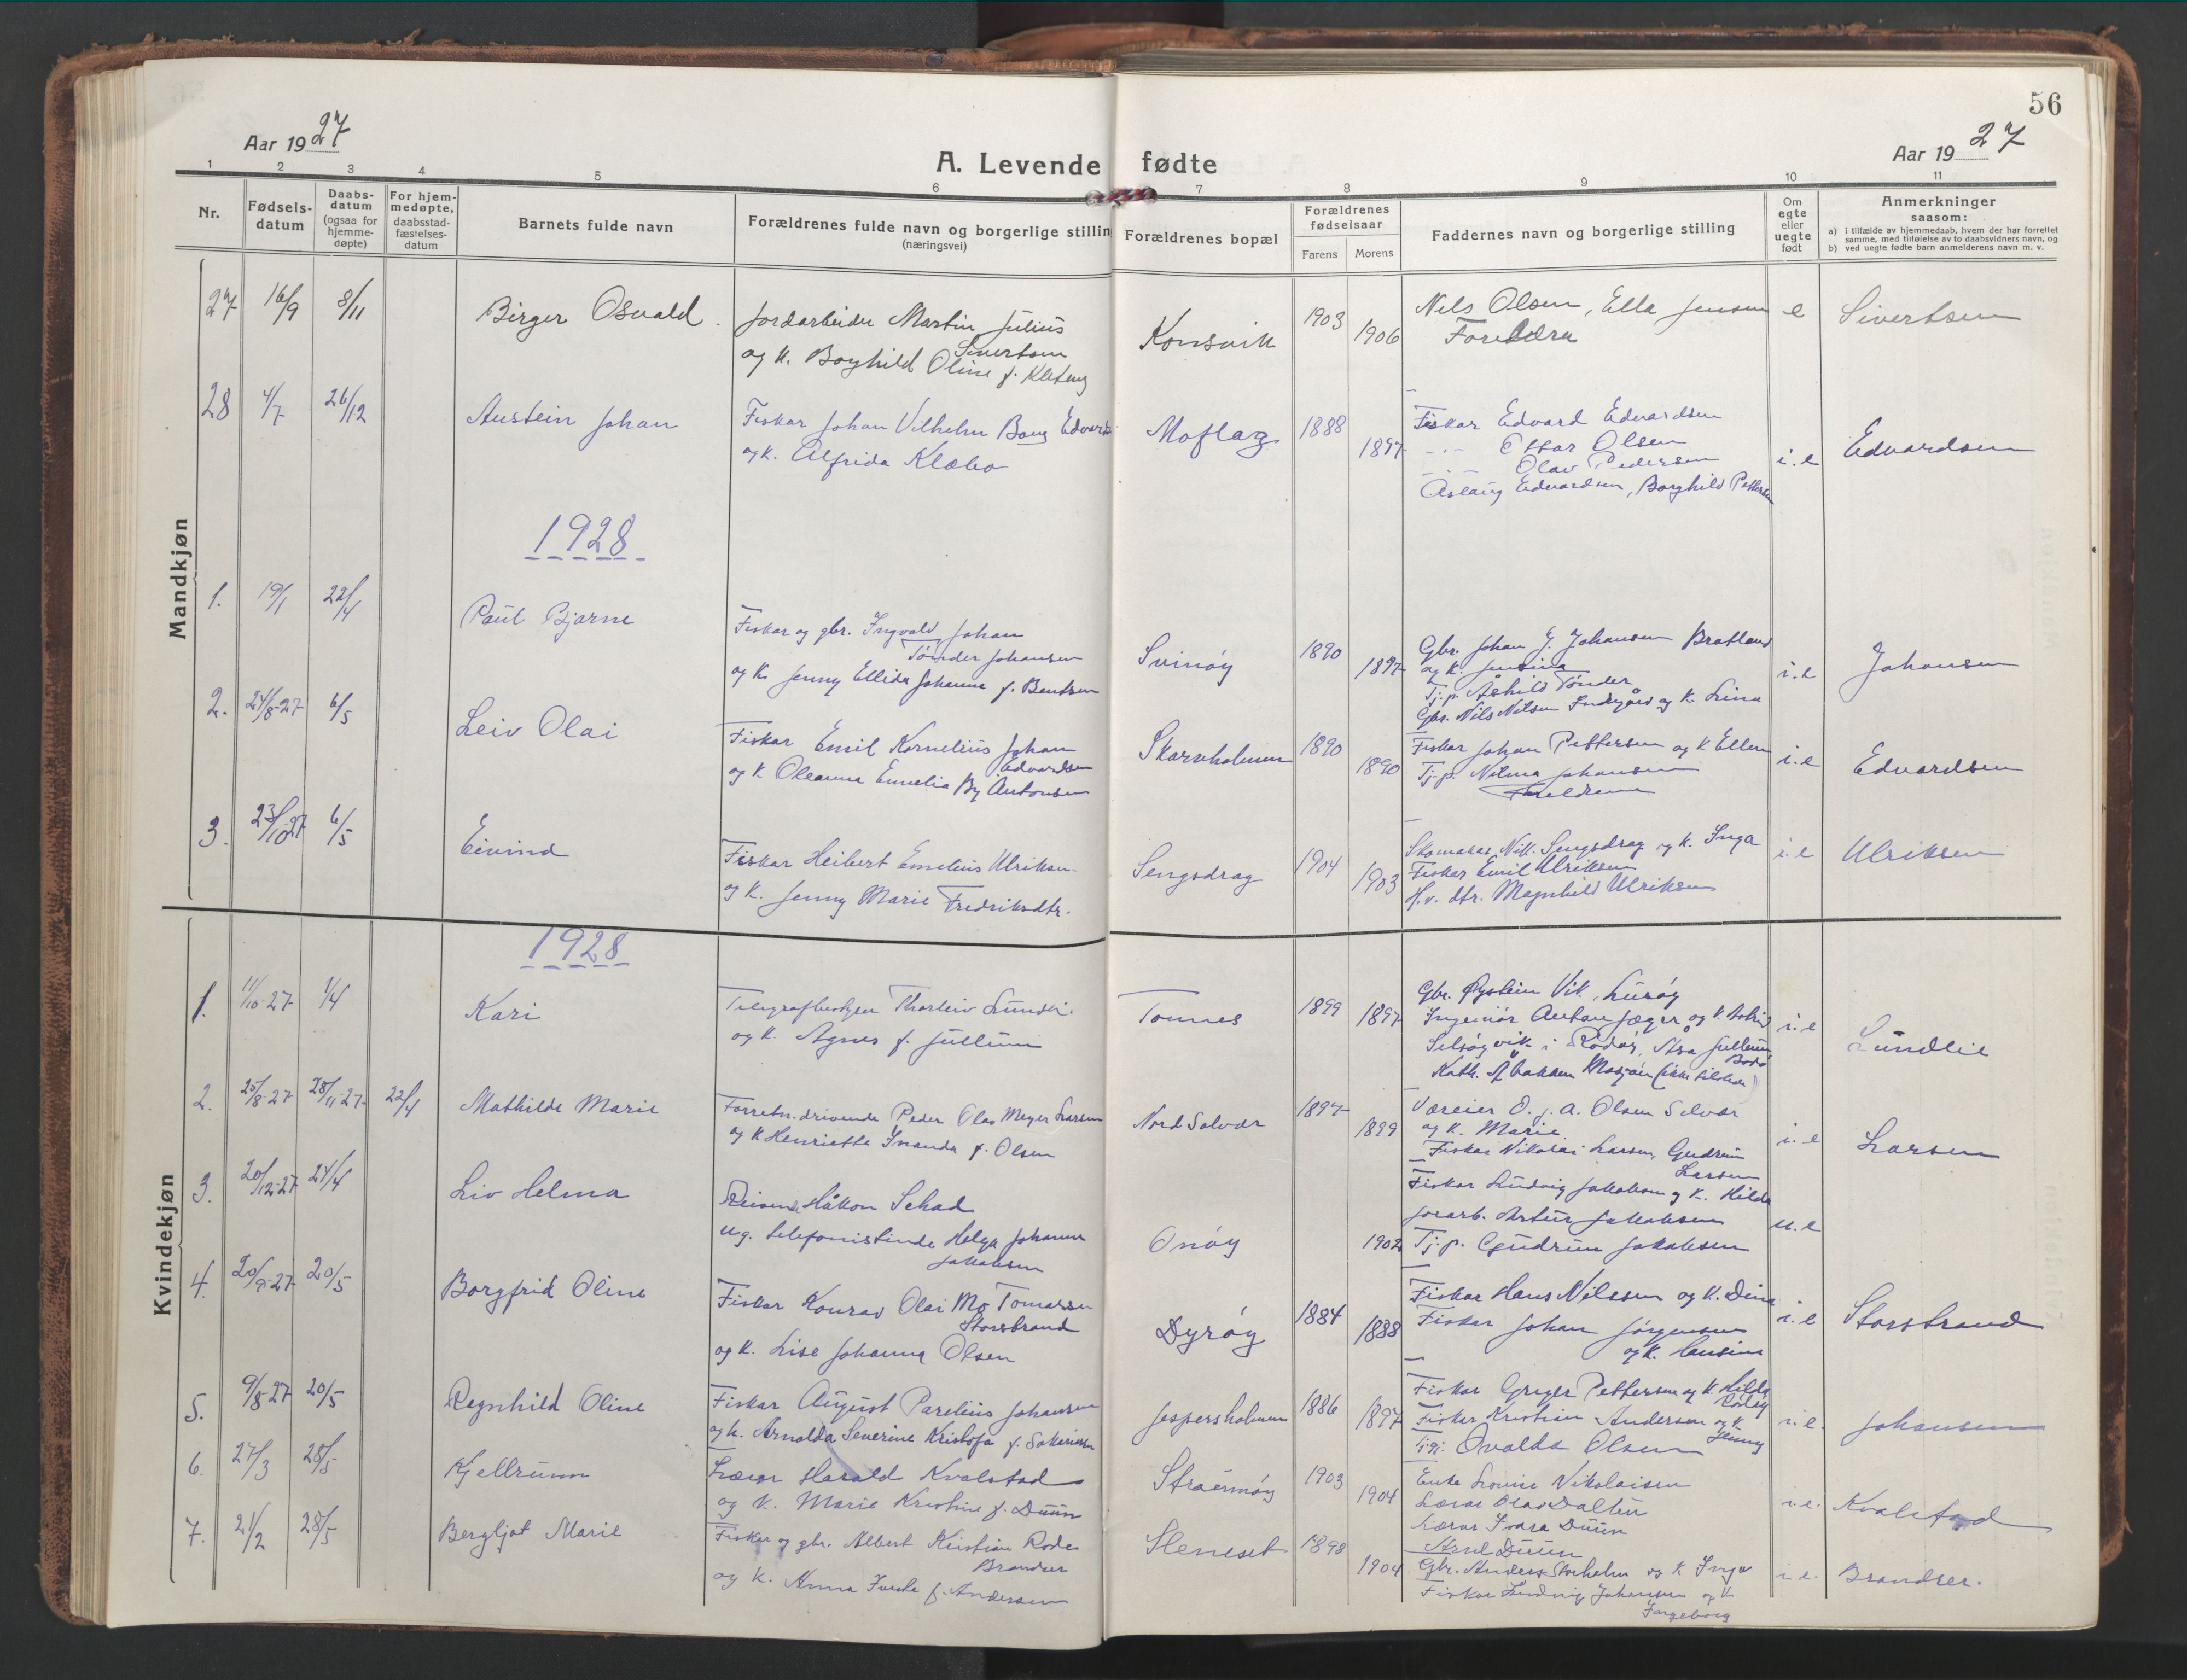 56
Aar 1927
A. Levende fødte
Aar 1927
1 2 3 4 5 6 7 8 9 10 11
Nr.
Fødsels-
datum
Daabs-
datum
(ogsaa for
hjemme-
døpte)
For hjem-
medøpte,
daabsstad-
fæstelses-
datum
Barnets fulde navn
Forældrenes fulde navn og borgerlige stillin
(næringsvei)
Forældrenes bopæl
Forældrenes
fødselsaar
Farens Morens
Faddernes navn og borgerlige stilling
Om
egte
eller
uegte
født
Anmerkninger
saasom:
a) i tilfælde av hjemmedaab, hvem der har forrettet
samme, med tilføielse av to daabsvidners navn, og
b) ved uegte fødte barn anmelderens navn m. v.
Mandkjøn
27 16/9 8/11 Birger Osvald
Jordarbeider Martin Julius
Sivertsen
og k. Borghild Oline f.
Konsvik 1903 1906
Nels Olsen, Ella Jensen
Foreldra
e Sivertsen
28 4/7 26/12 Austein Johan
Fiskar Johan Vilhelm Bang Edvards
og k. Alfrida Klæbo
Moflag 1888 1897
Fiskar Edvard Edvardsen
-"- Ottar Olsen
-"- Olav Pedersen
Aslaug Edvardsen, Borghild Pettersen
i.e Edvardsen
1928
1. 19/1 22/4 Paul Bjarne
Fiskar og gbr. Ingvald Johan
Tönder Johansen
og k. Jenny Ellida Johanna f. Bentsen
Svinöy 1890 1897
Gbr. Johan J. Johansen Bratland
og k. Jensina
Tj.p. Åshild Tönder
Gbr. Nils Nilsen Indregård og k. Lina
i.e Johansen
2. 24/8-27 6/5 Leiv Olai
Fiskar Emil Kornelius Johan
Edvardsen
og k. Oleanna Emelia By Antonsen
Skarvholmen 1890 1890
Fiskar Johan Pettersen og k Ellen
Tj.p. Nilma Johansen
Foreldrene
i.e Edvardsen
3. 23/10-27 6/5 Eivind
Fiskar Heibert Emelius Ulriksen
og k. Jenny Marie Fredriksdtr.
Sengsdrag 1904 1903
Skomakar Nik. Sengsdrag og k. Inga
Fiskar Emil Ulriksen
H.v. dtr. Magnhild Ulriksen
i.e Ulriksen
Kvindekjøn
1928
1. 11/10-27 1/4 Kari
Telegrafbestyrer Thorleiv Lundli
og k. Agnes f. Jullum
Tonnes 1899 1897
Gbr. Øystein Vik, Luröy
Ingeniör Anton Jæger og k. Astrid
Selsöyvik i Rödöy, Åsa Jullum,
Bodö
Kath. Mosjøen (ikke tilstede)
i.e Lundlie
2. 25/8-27 28/11-27 22/4 Mathilde Marie
Forretn.drivende Peder Olav Meyer Larsen
og k Henriette Inanda f. Olsen
Nord Solvær 1897 1899
Væreier O. J. A. Olsen Selvær
og k. Marie
Fiskar Nikolai Larsen, Gudrun
Larsen
i.e Larsen
3. 20/12-27 24/4 Liv Helma
Reisende Håkon Schad
ug. telefonistinde Helga Johanne
Jakobsen
Onöy 1902
Fiskar Ludvig Jakobsen og k. Hilda
Jorarb. Artur Jakobsen
Tj.p. Gudrun Jakobsen
u.e
4. 20/9-27 20/5 Borgfrid Oline
Fiskar Konrad Olai Mo Tomassen
Storstrand
og k. Lise Johanna Olsen
Dyröy 1884 1888
Fiskar Hans Nilssen og k. Dina
Fiskar Johan Jörgensen
og k. Hansine
i.e Storstrand
5. 9/8-27 20/5 Ragnhild Oline
Fiskar August Parelius Johansen
og k. Arnolda Severine Kristofa f. Sakariassen
Jespersholmen 1886 1897
Fiskar Greger Pettersen og k. Hilda
Fiskar Kristian Andersen og k
Jenny
Tj.p. Ovalda Olsen
i.e. Johansen
6. 27/3 28/5 Kjellrunn
Lærar Harald Kvalstad
og k. Marie Kristine f. Duun
Straumöy 1903 1904
Enke Lovise Nikolaisen
Lærar Olav Dalten
Lærar Ivara Duun
Arne Duun
i.e. Kvalstad
7. 21/2 28/5 Bergljot Marie
Fiskar og gbr. Albert Kristian Rode
Brandser
og k. Anna f. Andersen
Steneset 1898 1904
Gbr. Anders Storholm og k Inga
Fiskar Ludvig Johansen og k
Ingeborg
i.e. Brandser.